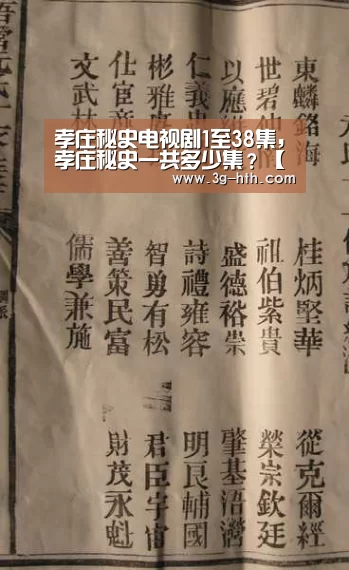 孝庄秘史电视剧1至38集，
孝庄秘史一共多少集？【
www.3g-hth.com
東麟銘海 桂炳堅華 從克爾經
世碧仙 祖伯紫貴 榮宗欽廷
以應 盛德裕崇 肇基浯灣
仁義 詩禮雍容 明良輔國
彬雅 智勇有松 君臣宇宙
仕宦 善策民富 財茂永魁
文武林 儒學兼施